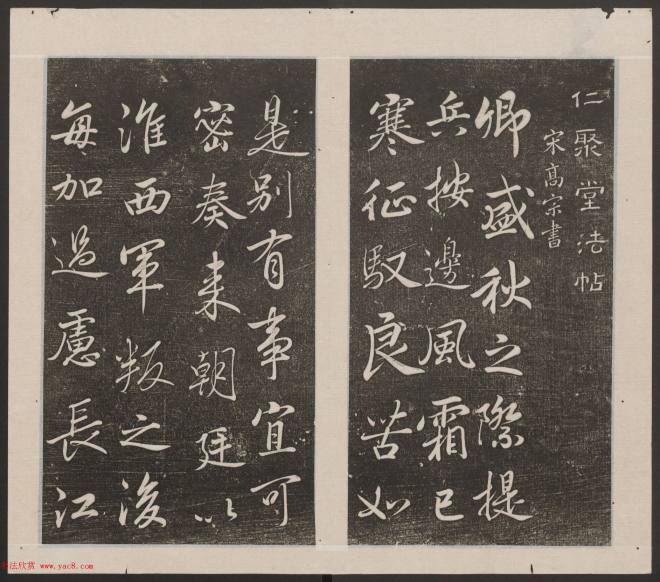 仁聚堂法帖
宋高宗書
卿盛秋之際提
兵按邊風霜已
寒征馭良苦如
是別有事宜可
密奏来朝廷以
淮西軍叛之後
每加過慮長江
书法欣赏 www.yac8.com